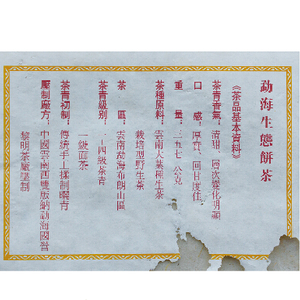 勐海生態餅茶
《茶品基本資料》
茶青香氣：清甜、層次變化明顯
口 感：厚實、回甘度佳
重 量：三五七公克
茶種原料：雲南大葉種生茶
栽培型野生茶
茶 區：雲南勐海布朗山區
茶青級別：一–四級茶青
一級面茶
茶青初制：傳統手工揉制曬青
壓制廠方：中國雲南西雙版納勐海國營
黎明茶廠壓制